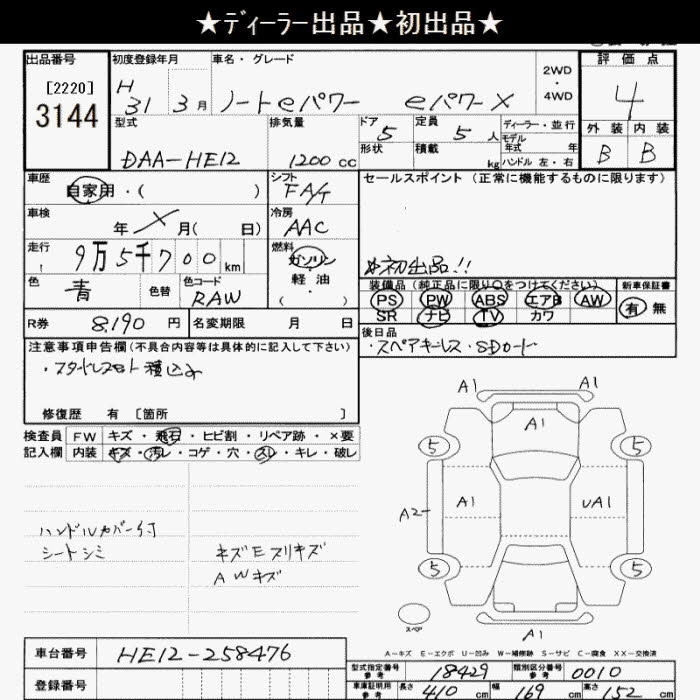 ★ディーラー出品★初出品★
出品番号 初度登録年月 車名・グレード 2WD・4WD 評価点
[2220]
3144
H 31 3月 ノートeパワー eパワーX 4
型式 排気量 ドア 定員 ディーラー・並行 外装 内装
DAA-HE12 1200cc 5 5人 モデル年式 年 B B
形状 積載 kg ハンドル 左・右
車歴 シフト セールスポイント(正常に機能するものに限ります)
自家用・( ) FA/T
車検 冷房
年 X 月( 日) AAC
走行 燃料
9万5千700km ガソリン・軽油・( )
初出品!!
装備品(純正品に限り〇をつけてください) 新車保証書
色 色替 色コード PS PW ABS エアB AW 有 無
青 RAW SR ナビ TV カワ
R券 8,190円 名変期限 月 日 後日品
・スペアキーレス・SDカード
注意事項申告欄(不具合内容等は具体的に記入して下さい)
・スタッドレスセット積込み
修復歴 有 [箇所 ]
検査員 FW キズ・飛石・ヒビ割・リペア跡・×要
記入欄 内装 キズ・汚レ・コゲ・穴・スレ・キレ・破レ
ハンドルカバー付
シートシミ
キズEスリキズ
AWキズ
A1 A1
A1
5 5
A2 A1 UA1
5 5
スペア
A1
A-キズ E-エクボ U-凹み W-補修跡 S-サビ C-腐食 XX-交換済
車台番号 HE12-258476
型式指定番号 参考 18429 類別区分番号 参考 0010
登録番号
車庫証明用 参考 長さ 410cm 幅 169cm 高さ 152cm